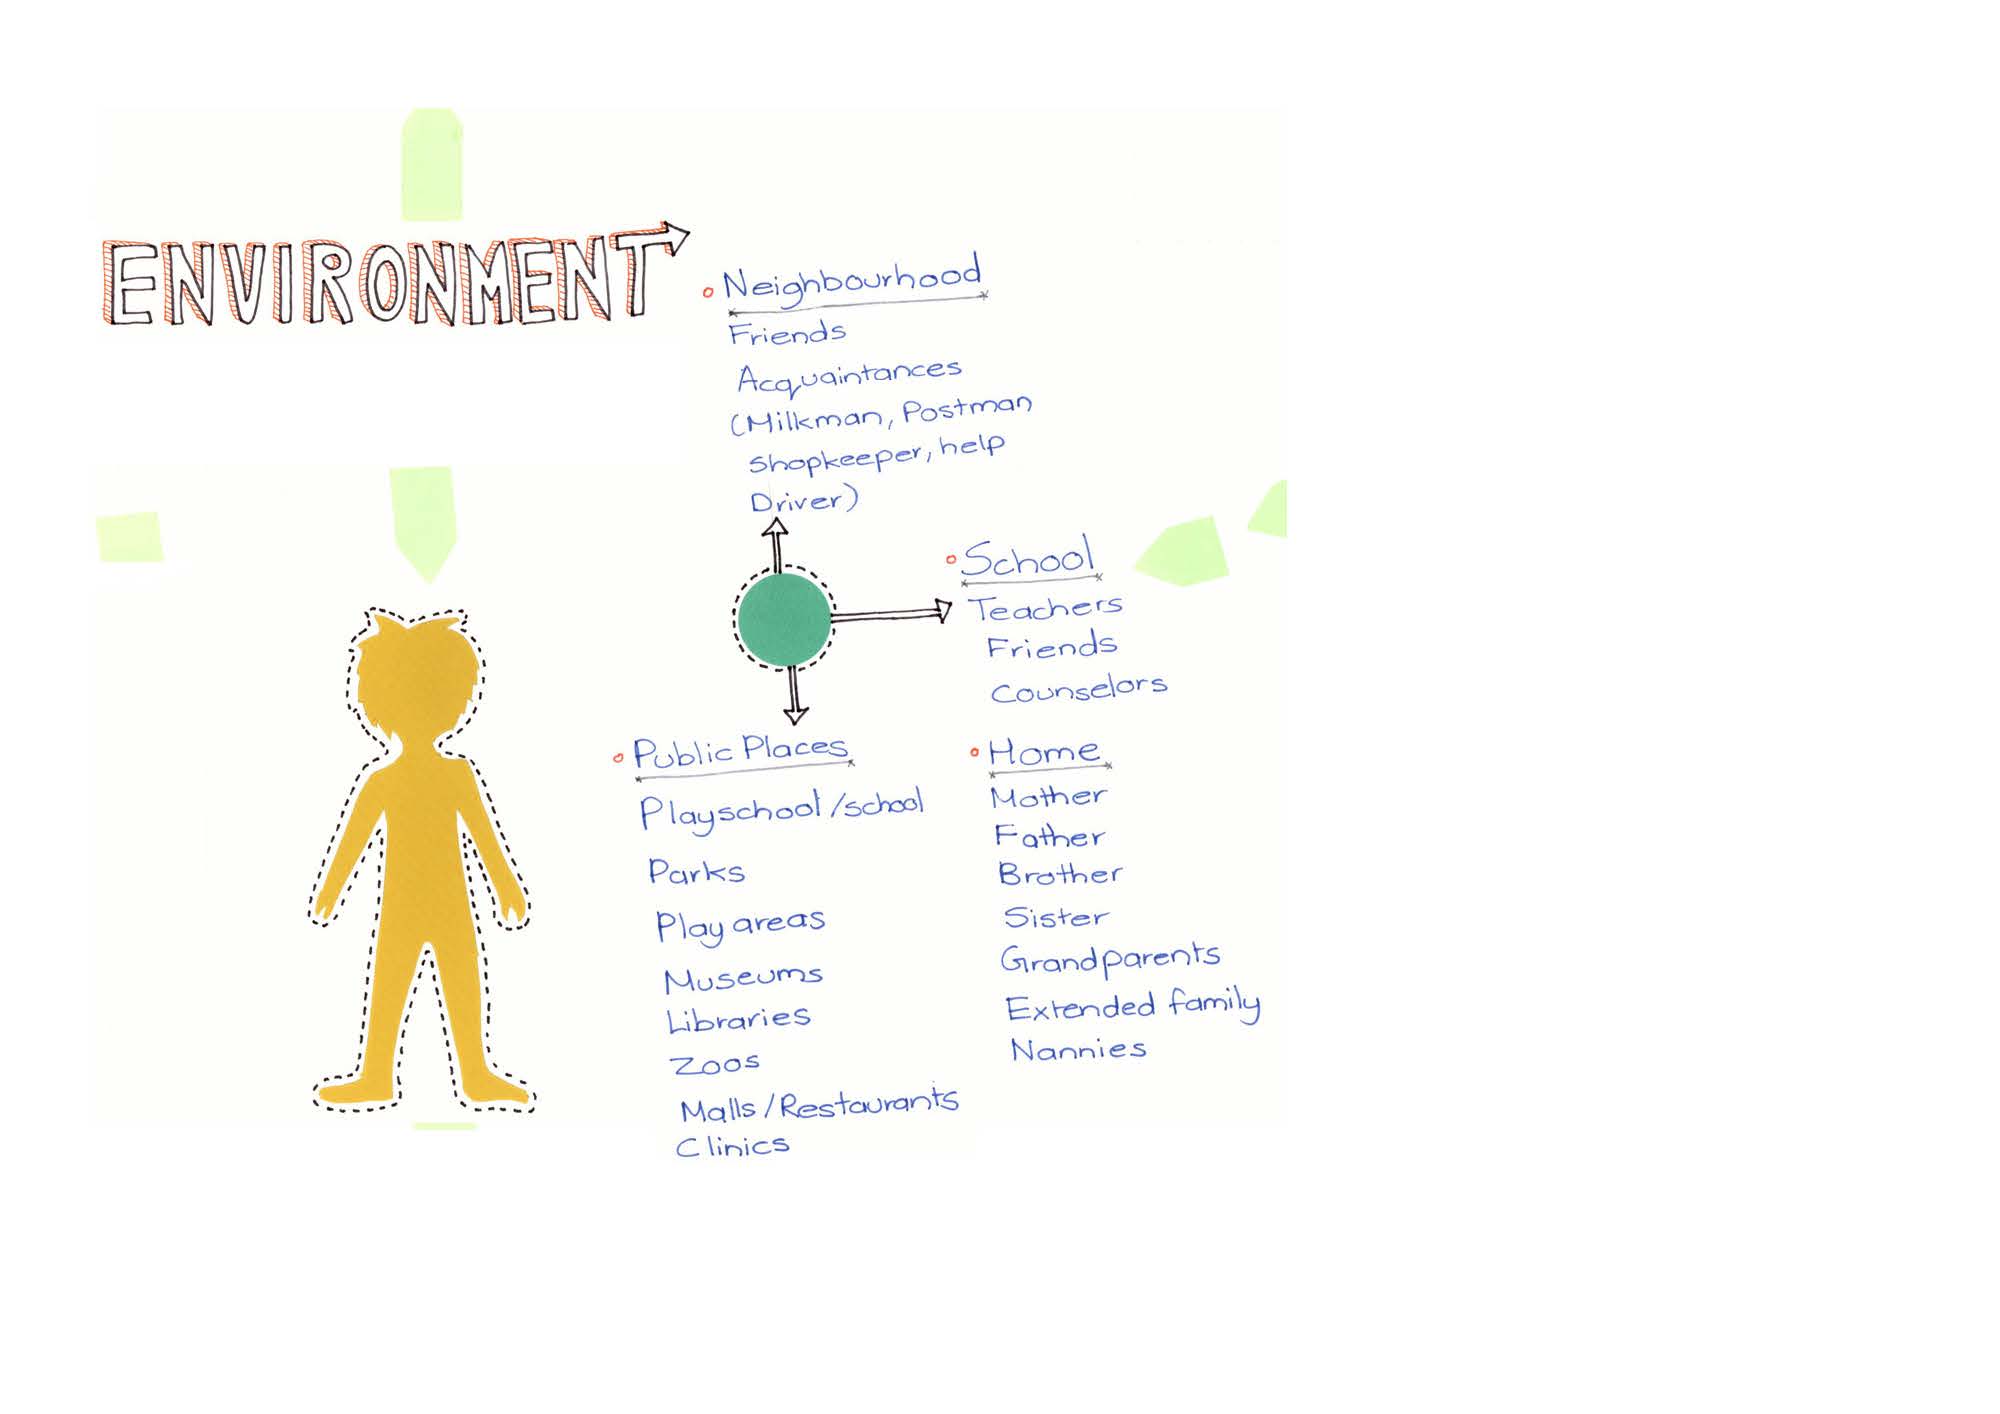 ENVIRONMENT
Neighbourhood
Friends
Acquaintances
(Milkman, Postman
Shopkeeper, help
Driver)
School
Teachers
Friends
Counselors
Public Places
Playschool/school
Parks
Play areas
Museums
Libraries
Zoos
Malls/Restaurants
Clinics
Home
Mother
Father
Brother
Sister
Grandparents
Extended family
Nannies